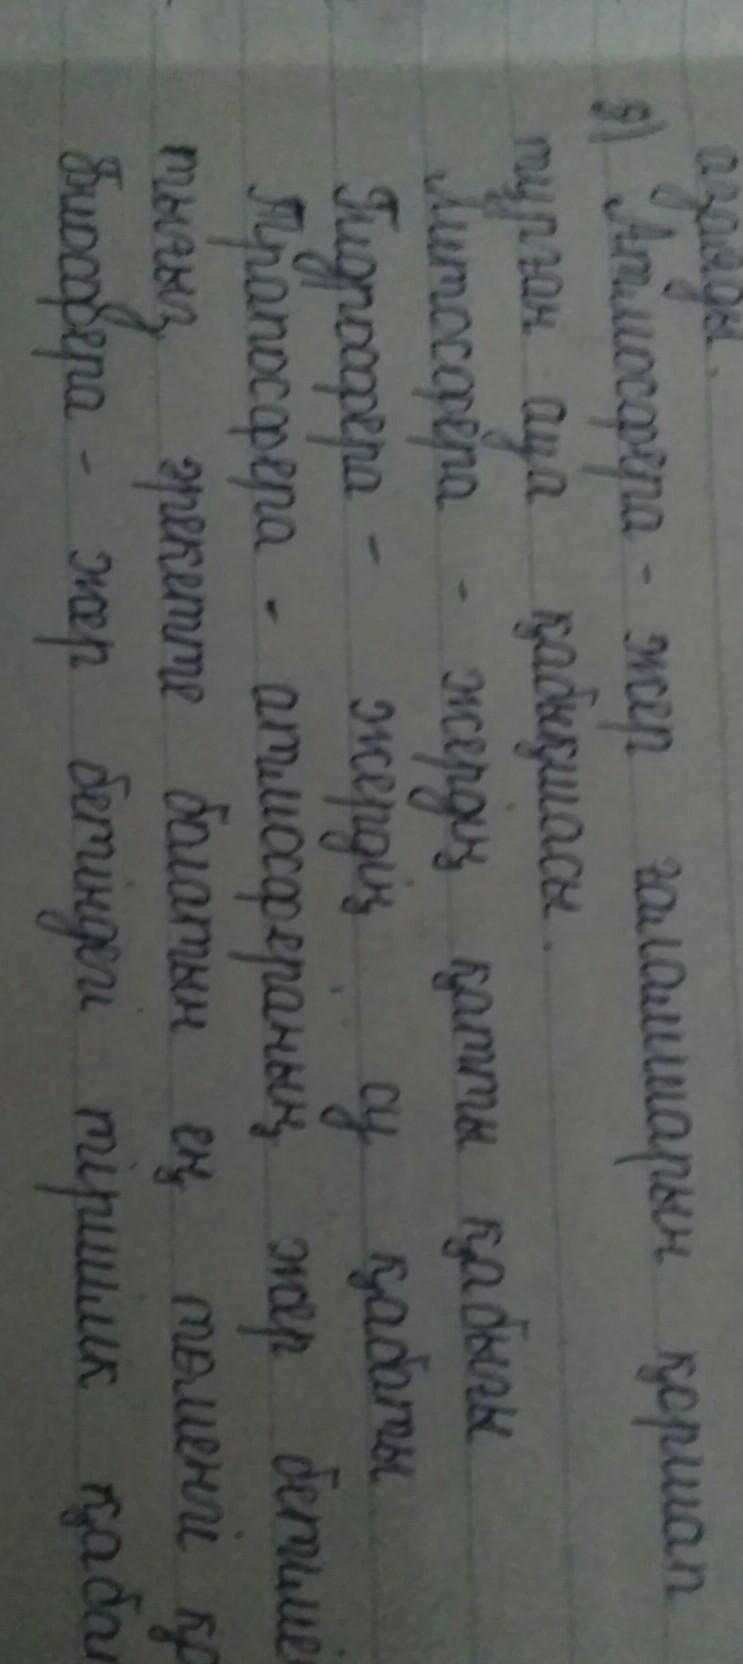 азаяды.
8) Атмосфера - жер ғаламшарын қоршап
тұрған ауа қабықшасы.
Литосфера - жердің қатты қабығы
Гидросфера - жердің су қабаты
Трапосфера - атмосфераның жер бетімен
тығыз әрекетте болатын ең төменгі қа
Биосфера - жер бетіндегі тіршілік қабы